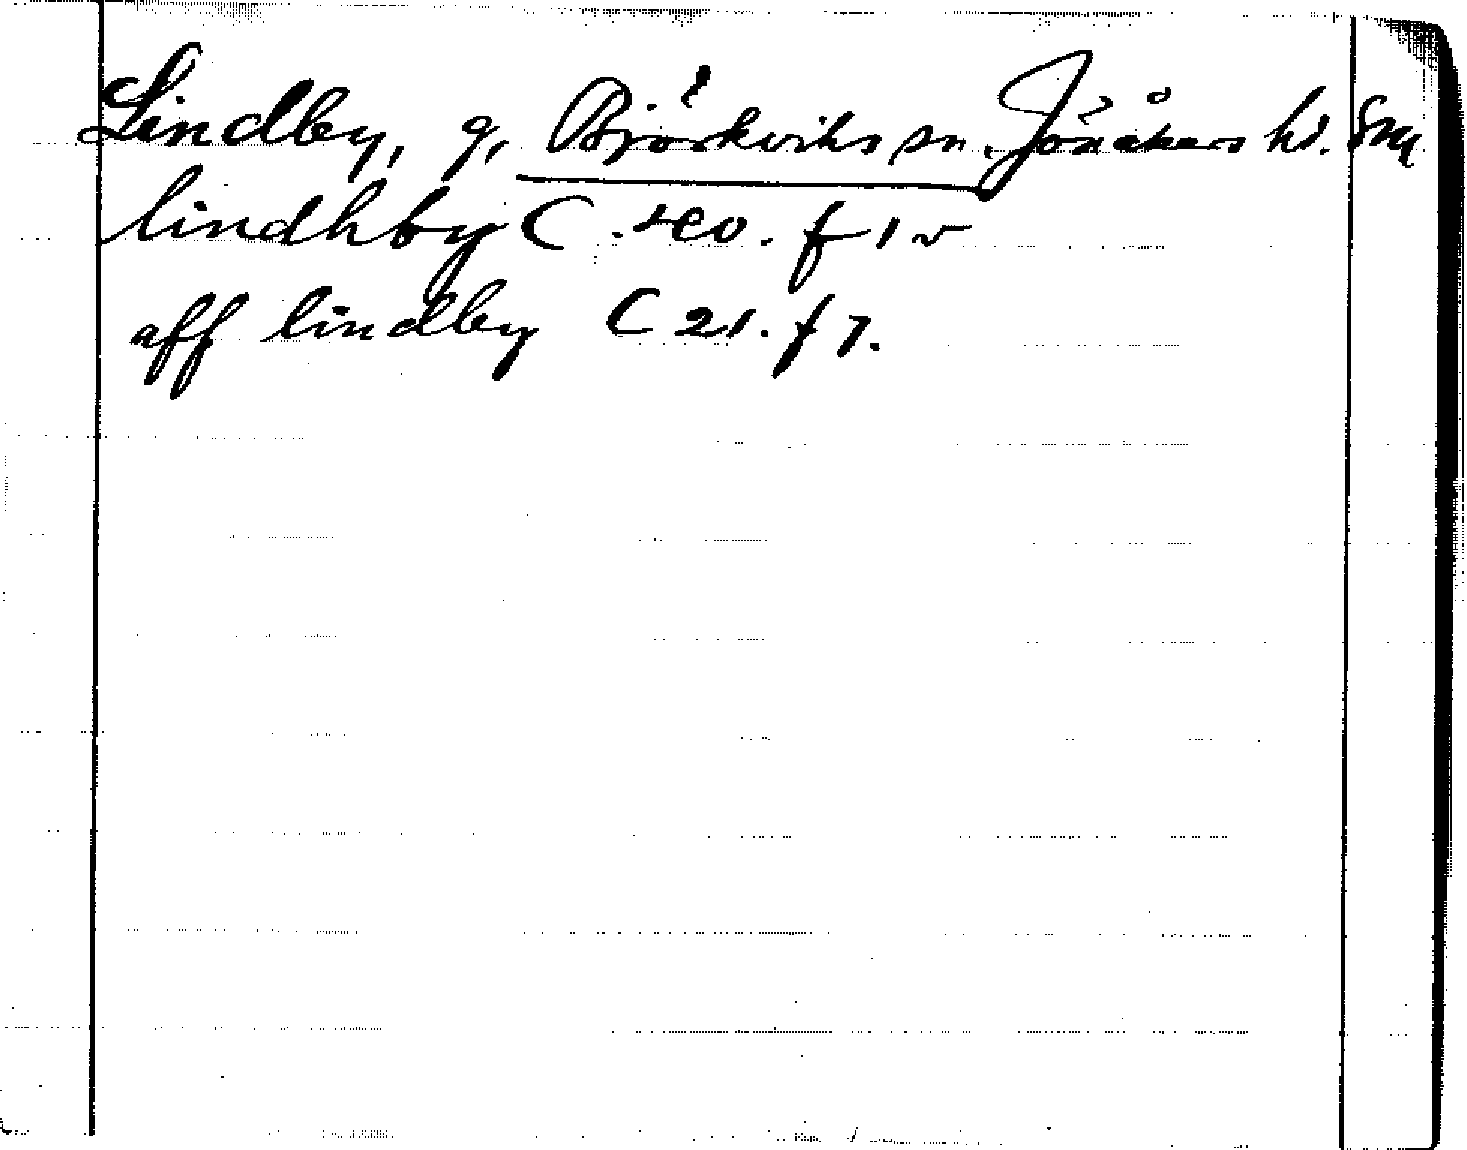 Lindby, g, Björkviks sn. Jönåkers hd. Sm
lindhby C. 20. f 1 v
aff lindby C 21. f 7.